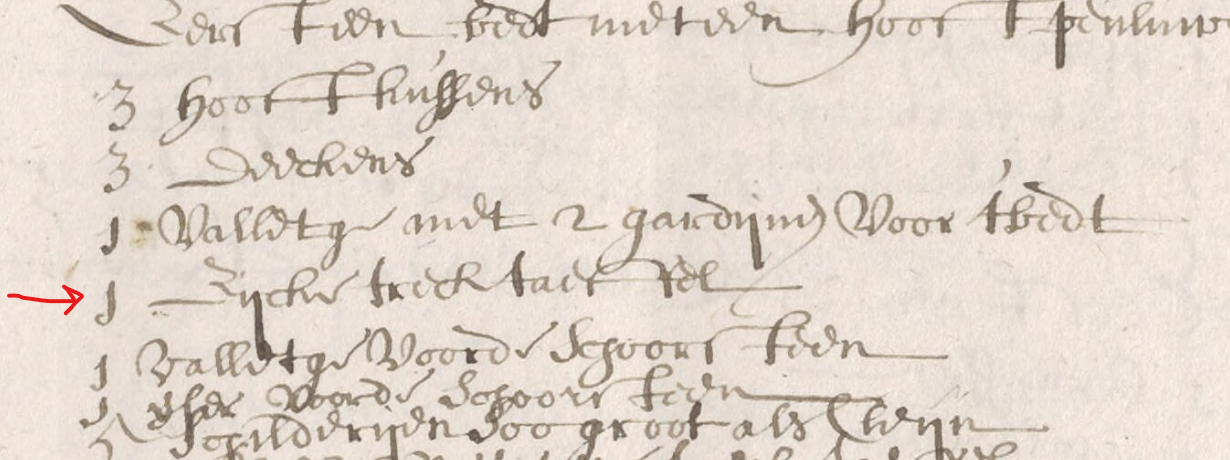 Eerst een bedt met een hooft peuluw
3 hooft kussens
3 deeckens
1 Valletge met 2 gardijnen Voor tbedt
1 Eijcke treck taeffel
1 valletge Voorde Schoorsteen
Voorde Schoorsteen
Schilderijen Soo groot als Cleijn